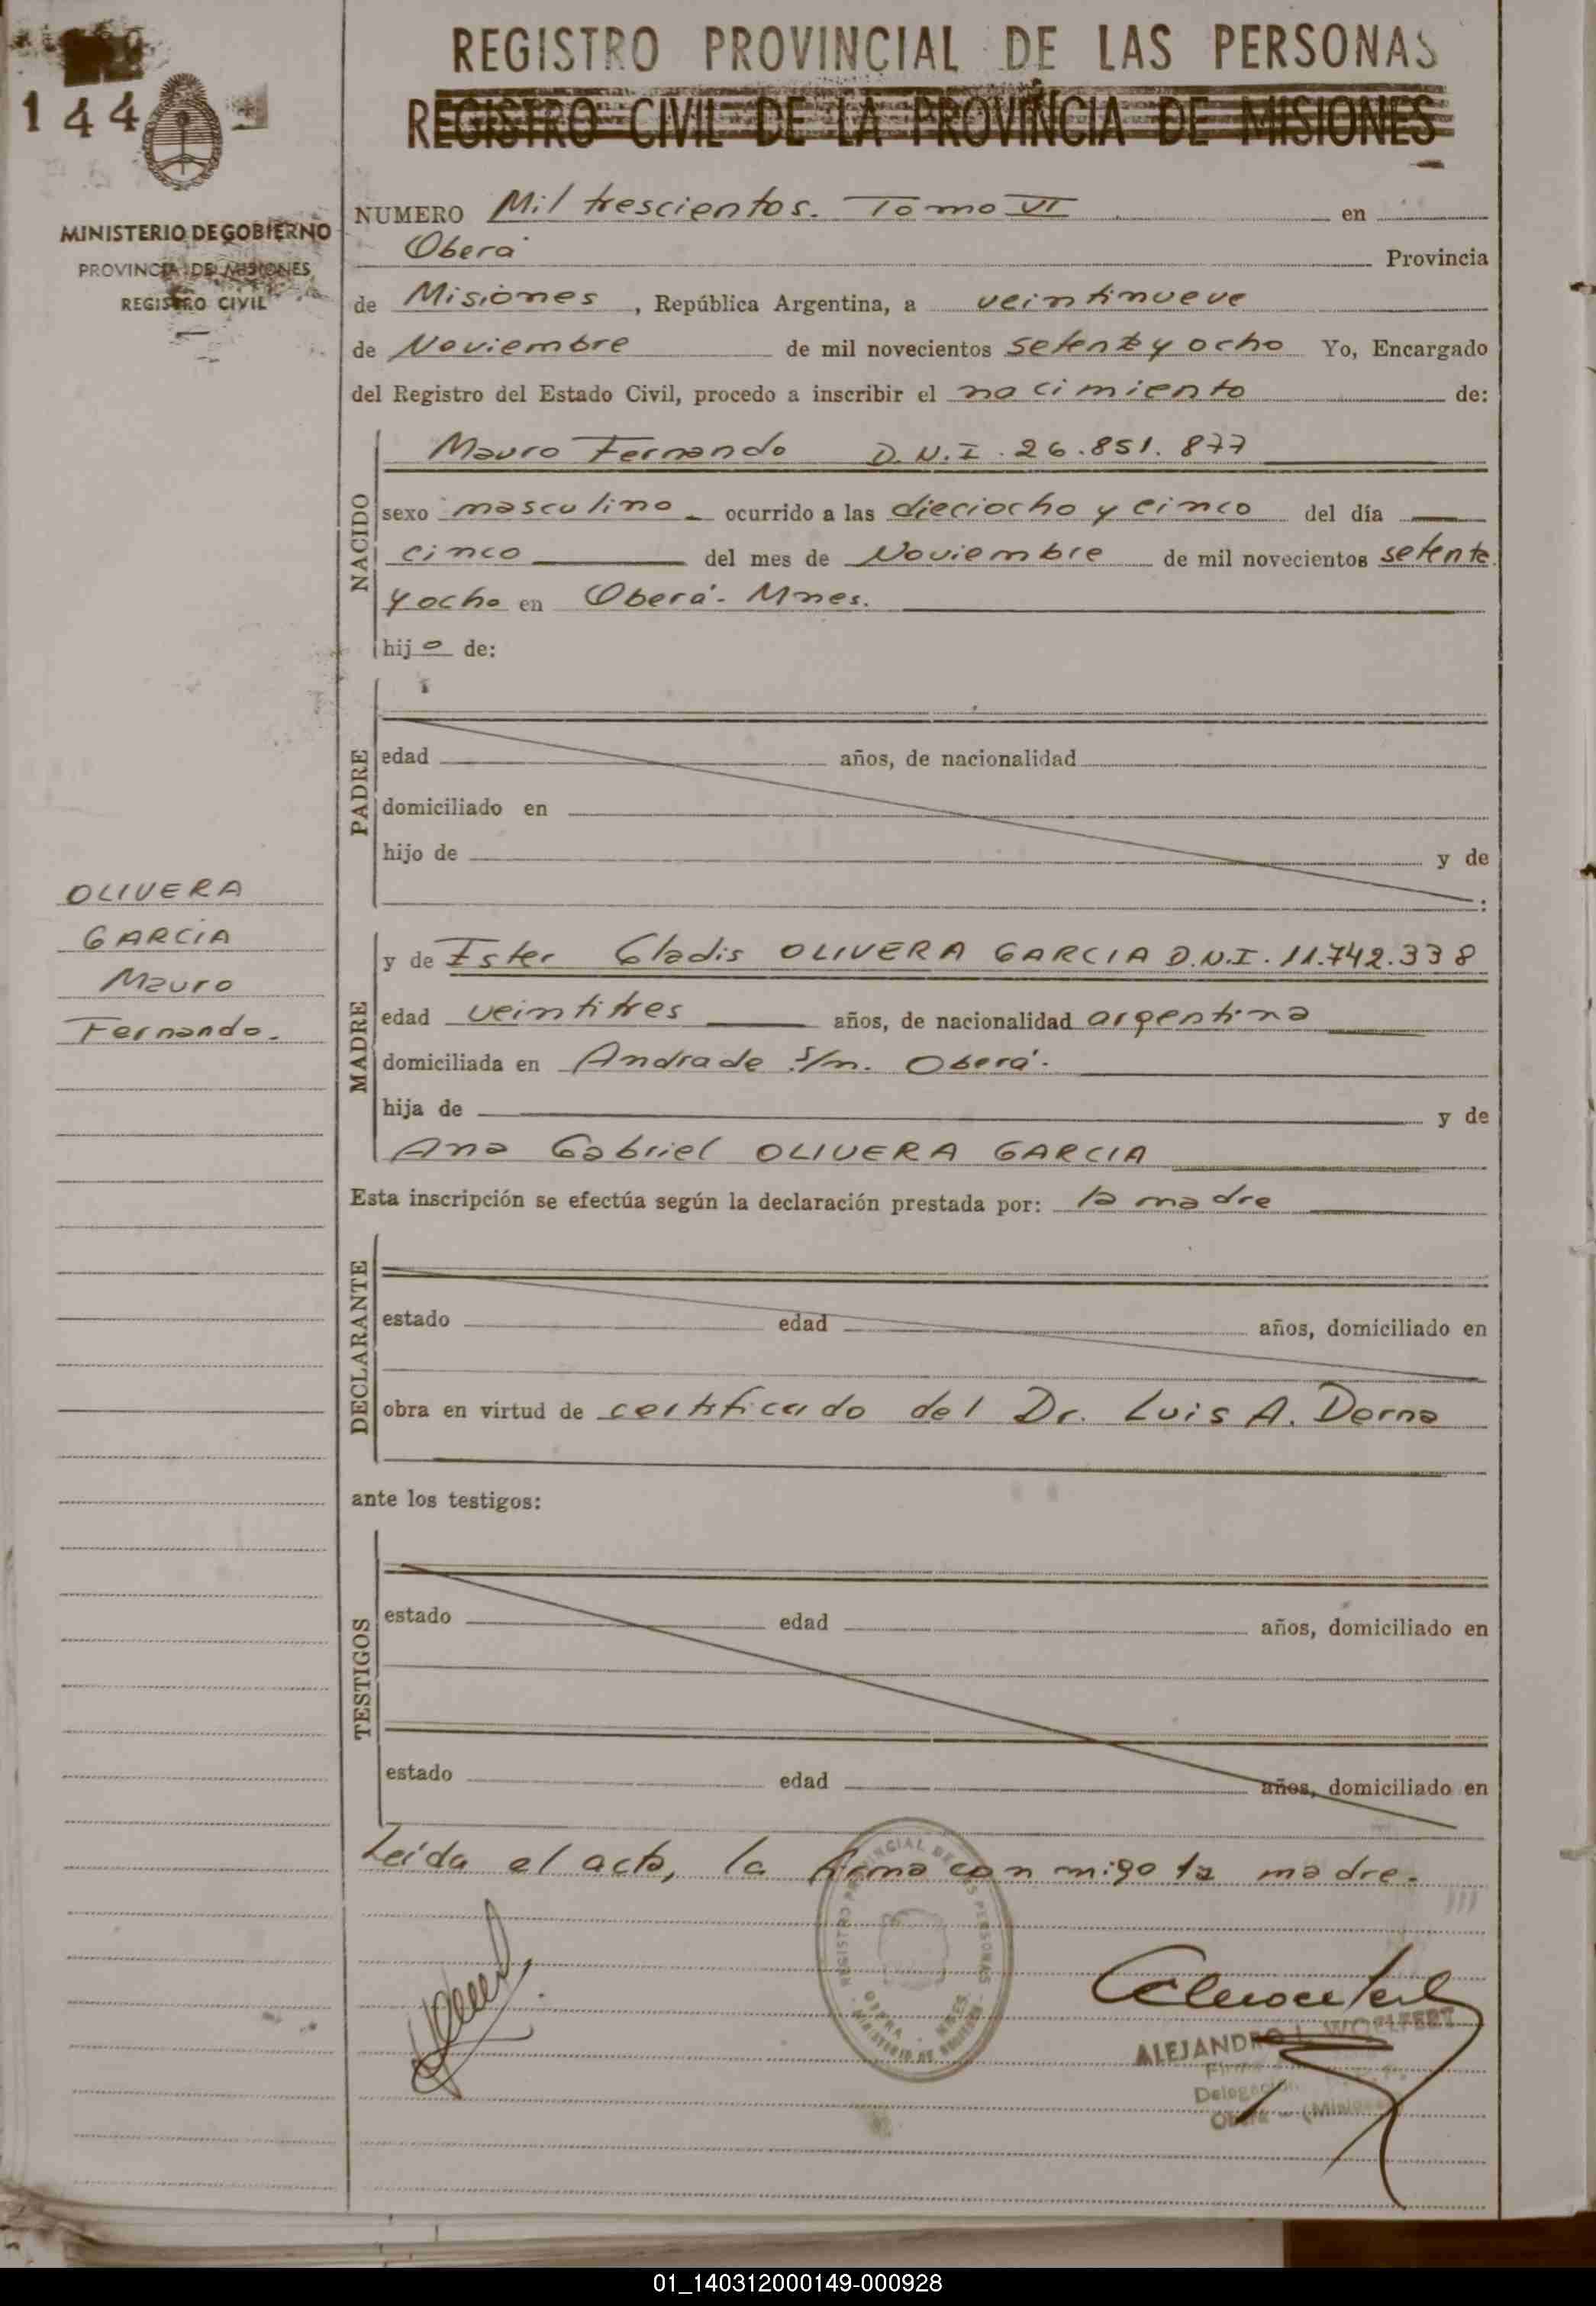 REGISTRO PROVINCIAL DE LAS PERSONAS
REGISTRO CIVIL DE LA PROVINCIA DE MISIONES
144
MINISTERIO DE GOBIERNO
PROVINCIA DE MISIONES
REGISTRO CIVIL
NUMERO Mil trescientos. Tomo VI en
Oberá Provincia
de Misiones, República Argentina, a veintinueve
de Noviembre de mil novecientos setenta y ocho Yo, Encargado
del Registro del Estado Civil, procedo a inscribir el nacimiento de:
NACIDO
Mauro Fernando D.N.I. 26.851.877
sexo masculino ocurrido a las dieciocho y cinco del día
cinco del mes de Noviembre de mil novecientos setenta
y ocho en Oberá - Mnes.
hijo de:
PADRE
edad años, de nacionalidad
domiciliado en
hijo de y de
OLIVERA
GARCIA
Mauro
Fernando.
MADRE
y de Ester Gladis OLIVERA GARCIA D.N.I. 11.742.338
edad veintitres años, de nacionalidad argentina
domiciliada en Andrade s/n. Oberá.
hija de y de
Ana Gabriel OLIVERA GARCIA
Esta inscripción se efectúa según la declaración prestada por: la madre
DECLARANTE
estado edad años, domiciliado en
obra en virtud de certificado del Dr. Luis A. Derna
ante los testigos:
TESTIGOS
estado edad años, domiciliado en
estado edad años, domiciliado en
Leída el acta, la firma conmigo la madre.
REGISTRO PROVINCIAL DE LAS PERSONAS
OBERA - MNES.
MINISTERIO DE GOBIERNO
ALEJANDRO L. WOELFERT
Delegación
Oberá - (Misiones)
01_140312000149-000928